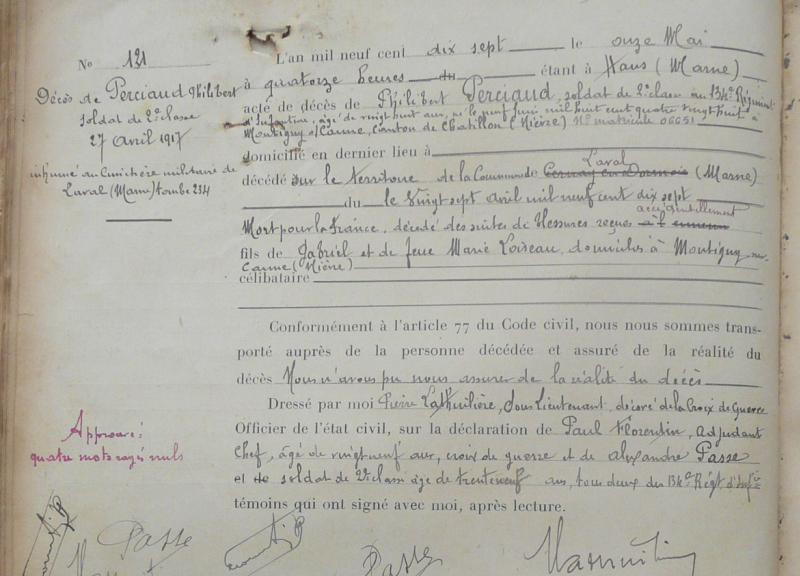 No 121
Décès de Perciaud Philibert
soldat de 2e classe
27 avril 1917
inhumé au Cimetière militaire de
Laval (Marne) tombe 234
L'an mil neuf cent dix sept le onze Mai
à quatorze heures du étant à Hans (Marne)
acte de décès de Philibert Perciaud, soldat de 2e classe au 134e Régiment
d'Infanterie, âgé de vingt huit ans, né le neuf mil huit cent quatre vingt huit à
Montigny s/Canne, Canton de Chatillon (Nièvre) No matricule 06651
domicilié en dernier lieu à
Laval
décédé sur le territoire de la Commune de Cernay en Dormois (Marne)
du le vingt sept avril mil neuf cent dix sept
accidentellement
Mort pour la France, décédé des suites de blessures reçues à l'ennemi
fils de Gabriel et de feue Marie Loiseau, domiciliés à Montigny sur
Canne (Nièvre)
célibataire
Conformément à l'article 77 du Code civil, nous nous sommes trans-
porté auprès de la personne décédée et assuré de la réalité du
décès Nous n'avons pu nous assurer de la réalité du décès
Dressé par moi Pierre Lathuilière, Sous Lieutenant, décoré de la Croix de Guerre
Officier de l'état civil, sur la déclaration de Paul Florentin, Adjudant
Chef, âgé de vingt neuf ans, croix de guerre et de Alexandre Passe
et de soldat de 2e classe âgé de trente neuf ans, tous deux du 134e Régt d'Infie
témoins qui ont signé avec moi, après lecture.
Approuvé:
quatre mots rayés nuls
Passe
Passe